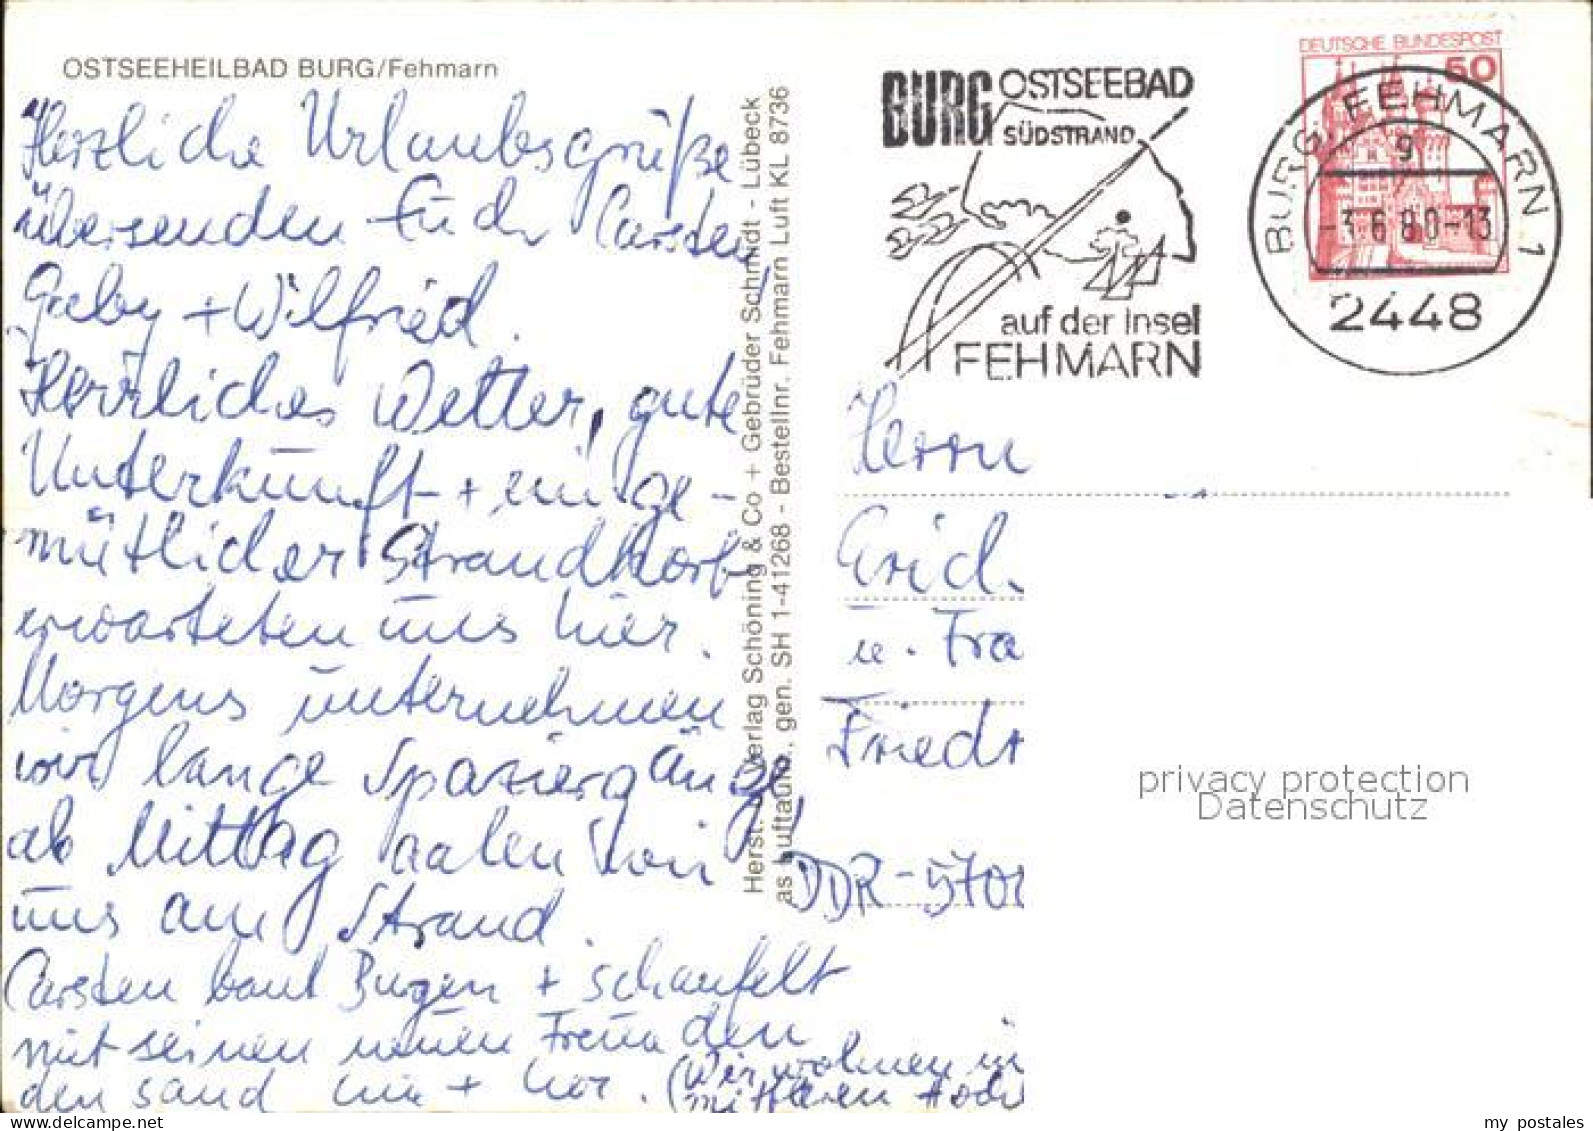 OSTSEEHEILBAD BURG/Fehmarn
Herzliche Urlaubsgrüße
übersenden Euch Carsten
Gaby + Wilfried.
Herrliches Wetter, gute
Unterkunft + ein ge-
mütlicher Strandkorb
erwarteten uns hier.
Morgens unternehmen
wir lange Spaziergänge
ab Mittag aalen wir
uns am Strand.
Carsten baut Burgen + schaufelt
mit seinen neuen Freunden
den Sand hin + her. (Wir wohnen im
mittleren Hoch
Herst. u. Verlag Schöning & Co + Gebrüder Schmidt - Lübeck
as Luftaufn., gen. SH 1-41268 - Bestellnr. Fehmarn Luft KL 8736
BURG OSTSEEBAD
SÜDSTRAND
auf der Insel
FEHMARN
DEUTSCHE BUNDESPOST
50
BURG, FEHMARN 1
g
-3.6.80-13
2448
Herrn
Erich
u. Fra
Friedr
DDR-5701
privacy protection
Datenschutz
my postales